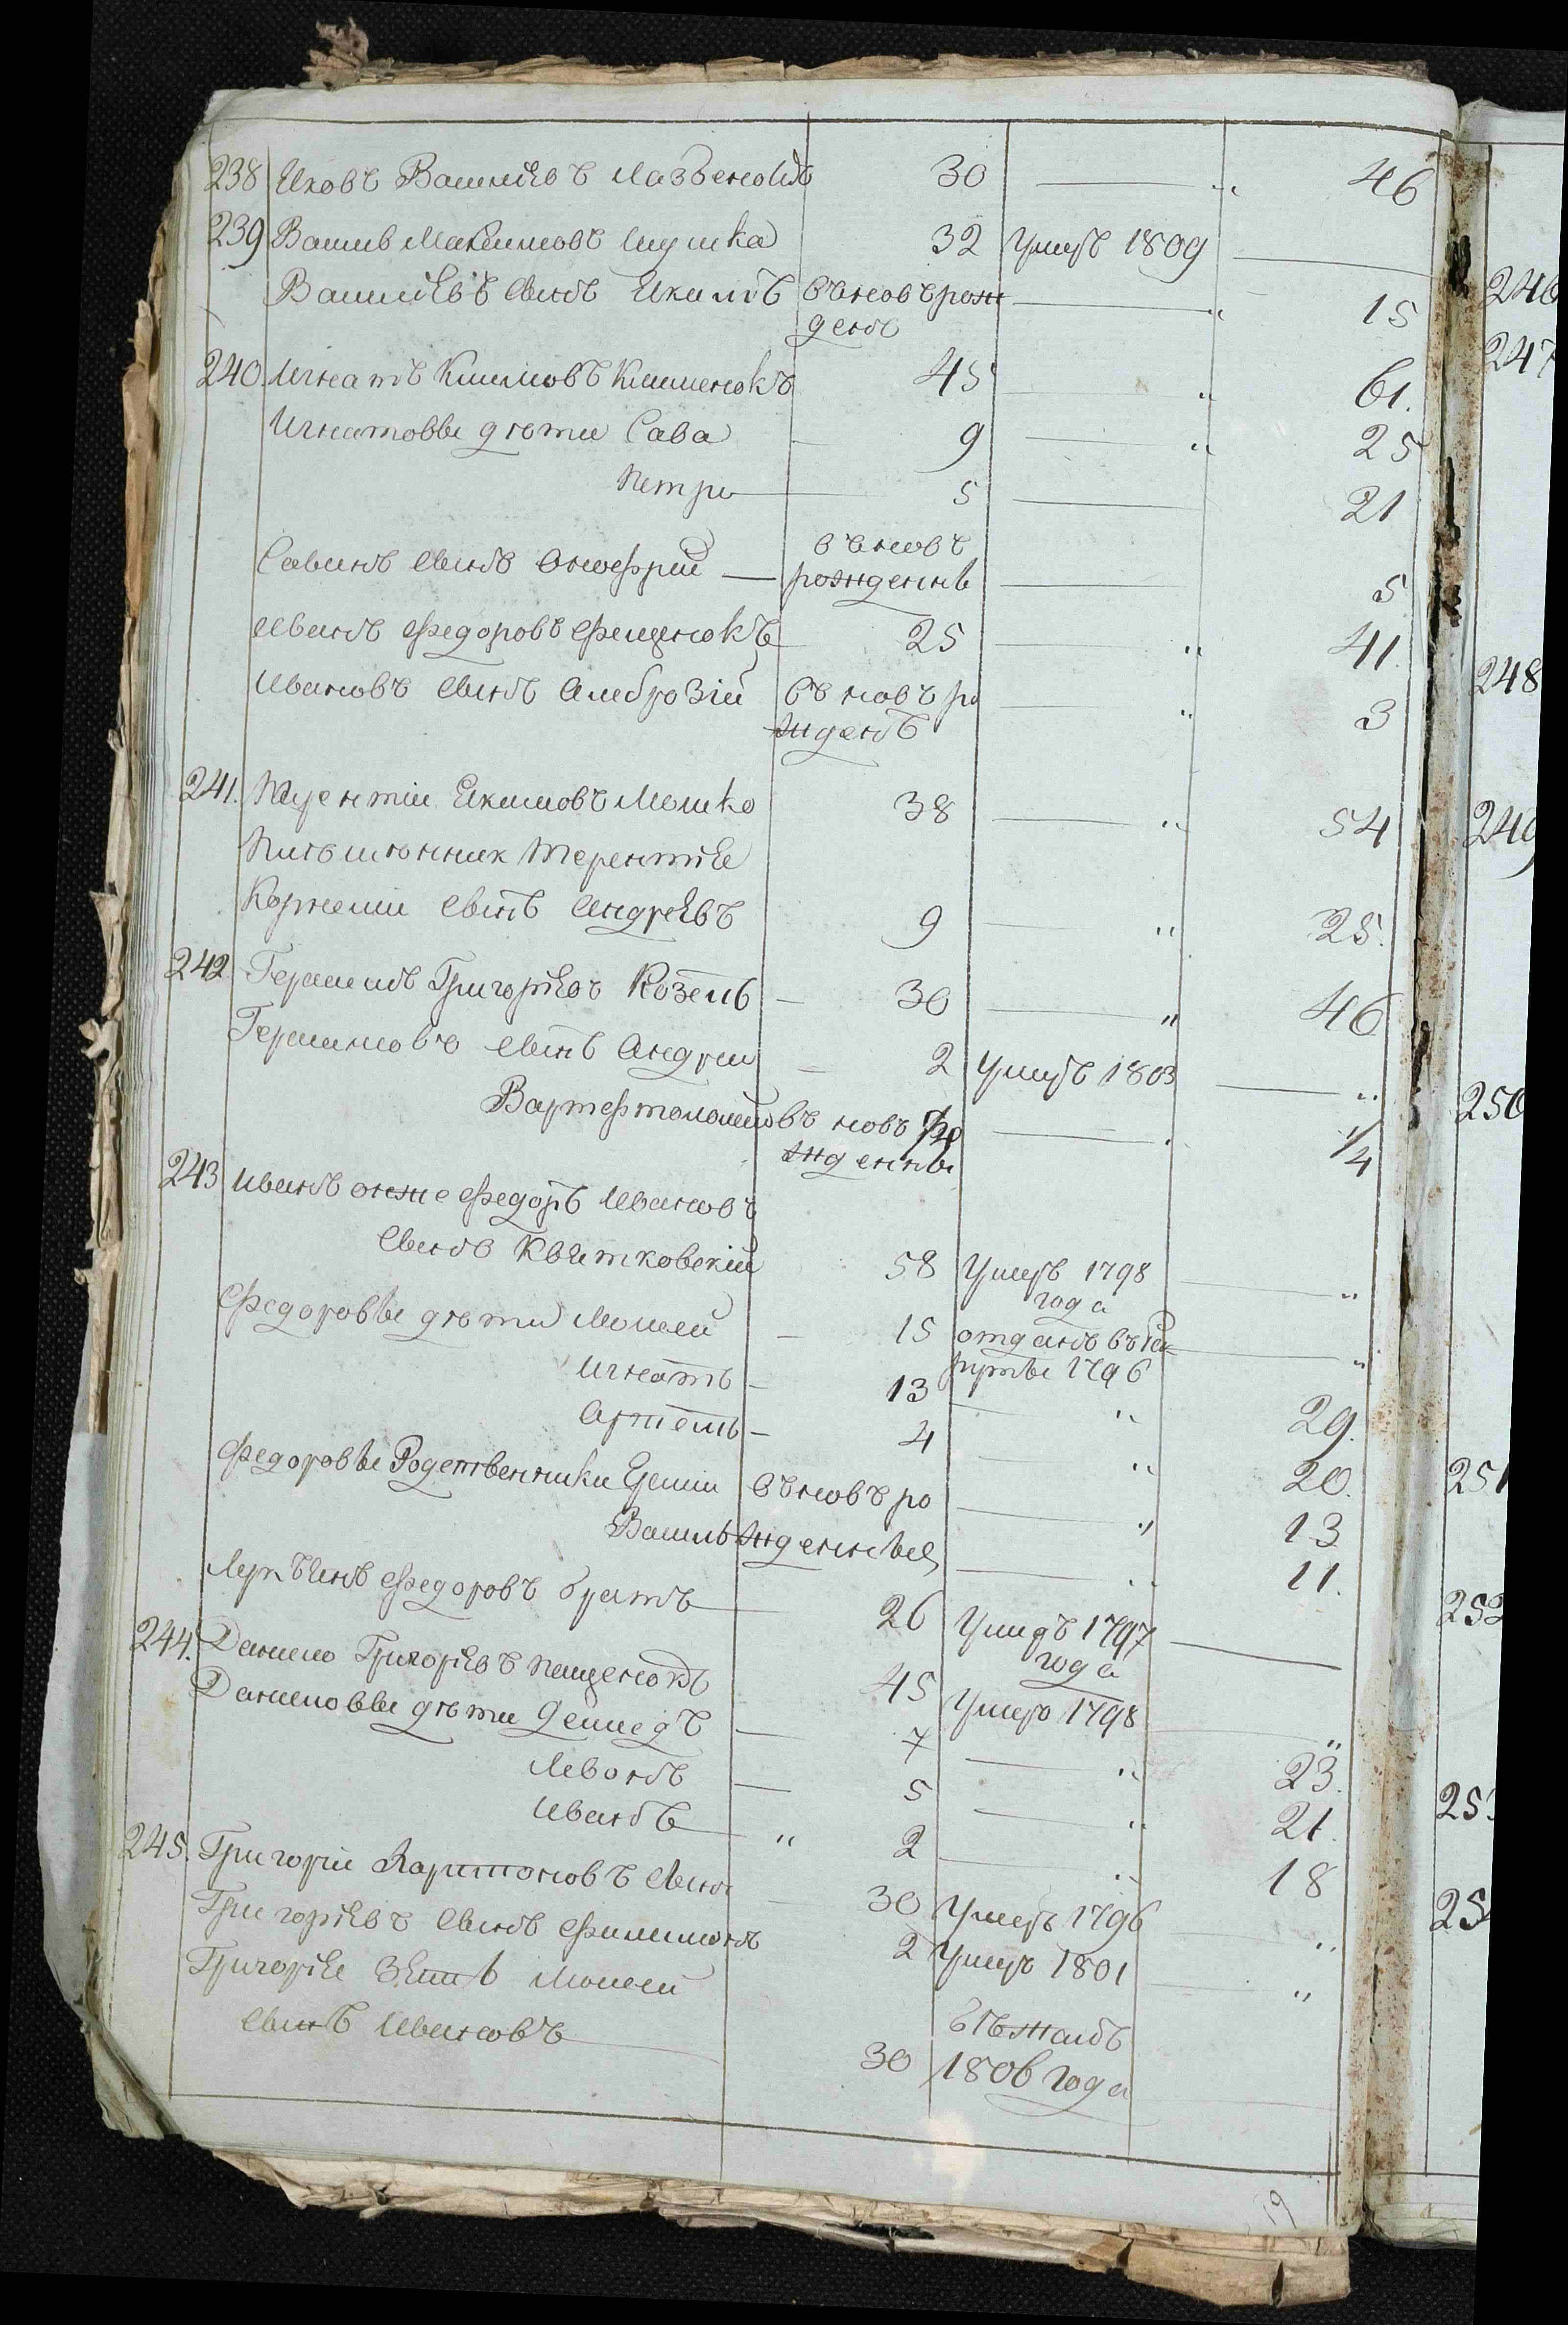 238 Яковъ Василиевъ 30 — „ 46
239 Василь Максимовъ 32 Умеръ 1809 —
Василиевъ Сынъ Якимъ въновь рож — „ 15
денъ
240 Игнатъ Климовъ Клименокъ 45 „ 61.
Игнатовы дѣти Сава — 9 — „ 25
Петро — 5 — 21
въновь
Савинъ Сынъ Онофрий — рожденны — 5
Иванъ Федоровъ Фещенокъ 25 — „ 41.
Ивановъ Сынъ Амброзій въ новъ ро — „ 3
жденъ
241. Екимовъ 38 — „ 54
Терентие
Корнелии Сынъ Андреевъ 9 — „ 25.
242 Герасимъ Григориевъ Козелъ — 30 — „ 46
Герасимовъ Сынъ Андреи — 2 Умеръ 1803 — „
Вартефтоломеи въ новъ ро — 1/4
жденны
243 Иванъ онже Федоръ Ивановъ
Сынъ Квятковскій 58 Умеръ 1798 — „
года
Федоровы дѣти Моисеи — 15 отданъ въ Рек — „
руты 1796
Игнатъ — 13 — „ 29.
Артемъ — 4 — „ 20.
Федоровы Родственники въновъ ро — „ 13
Василь жденные — „ 11.
Федоровъ братъ — 26 Умеръ 1797 —
года
244. Данило Григориевъ Пащенокъ 45 Умеръ 1798 — „
Даниловы дѣти Демидъ — 7 — „ 23.
Левонъ — 5 — „ 21.
Иванъ — „ 2 — „ 18
245. Григории Харитоновъ Сынъ — 30 Умеръ 1796 „
Григориевъ Сынъ Филимонъ 2 Умеръ 1801 — „
Григорие Зять Моисеи
Сынъ Ивановъ — бѣжалъ
30 1806 года
19
246
247
248
249
250
251
252
25
25